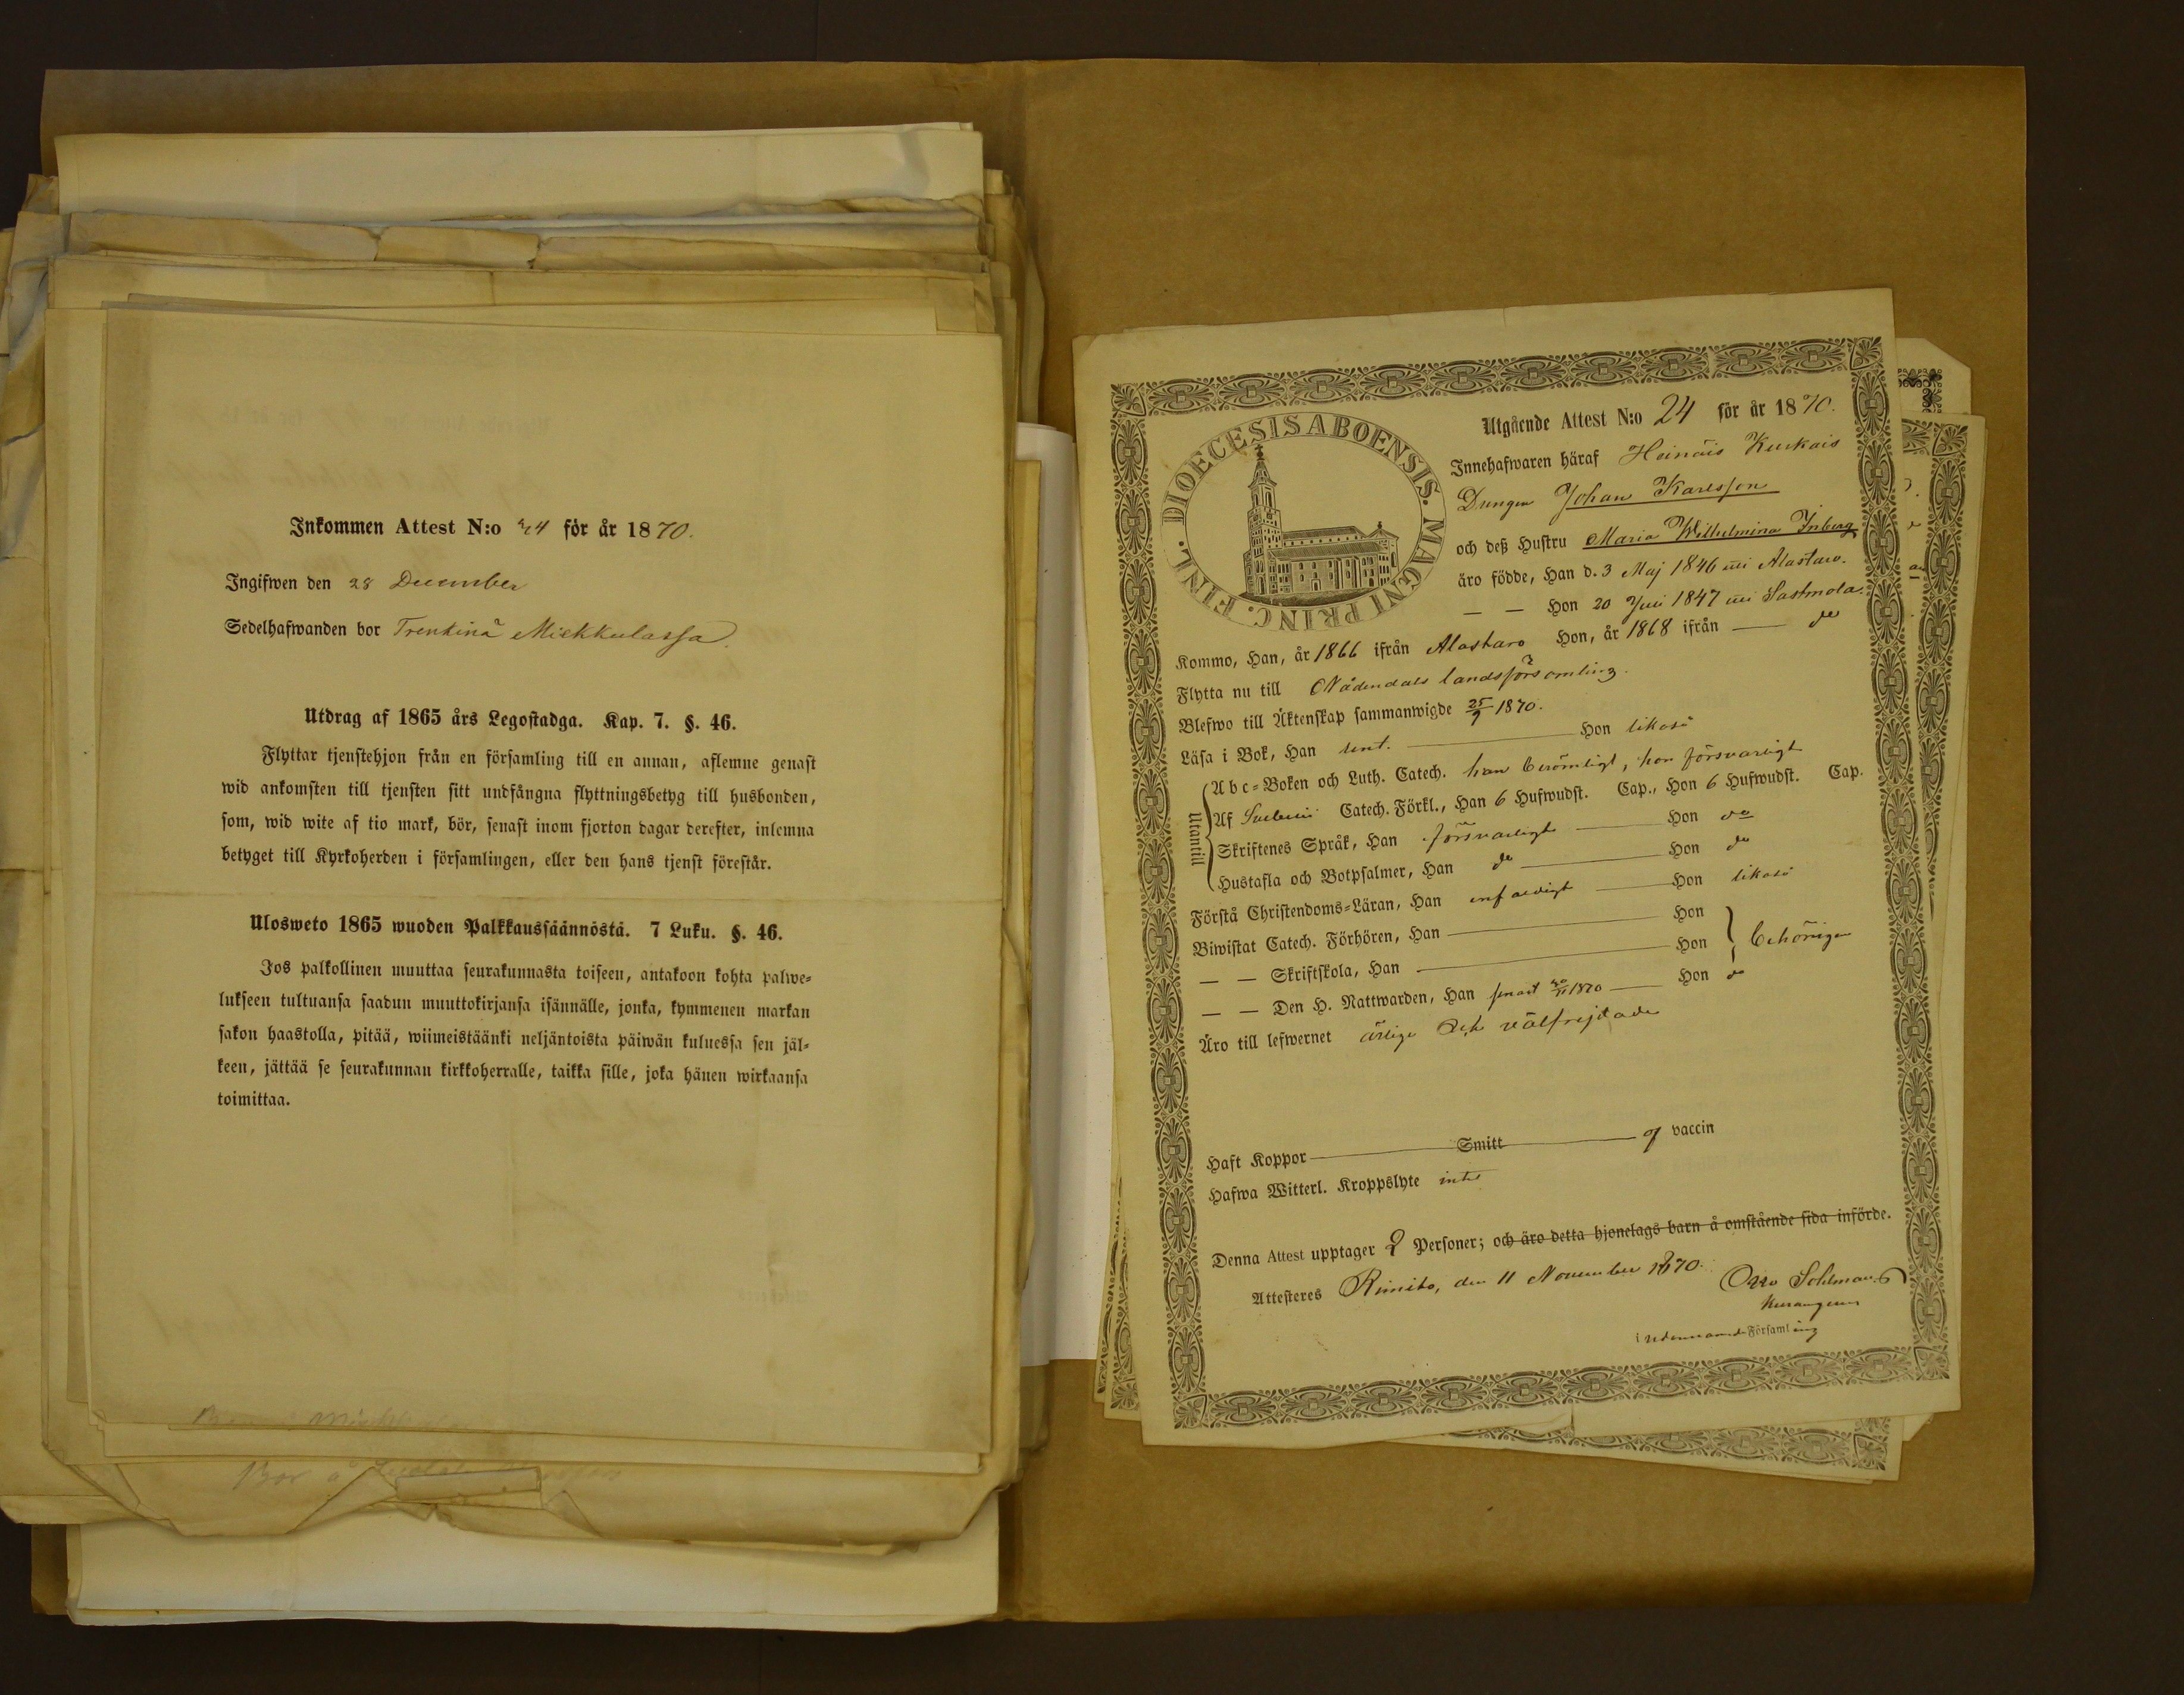 Inkommen Attest N:o 44 för år 1870.
Ingifwen den 28 December
Sedelhafwanden bor Trenkinä Miekkulassa.
Utdrag af 1865 års Legostadga. Kap. 7. §. 46.
Flyttar tjenstehjon från en församling till en annan, aflemne genast
wid ankomsten till tjensten sitt undfångna flyttningsbetyg till husbonden,
som, wid wite af tio mark, bör, senast inom fjorton dagar derefter, inlemna
betyget till Kyrkoherden i församlingen, eller den hans tjenst förestår.
Ulosweto 1865 wuoden Palkkaussäännöstä. 7 Luku. §. 46.
Jos palkollinen muuttaa seurakunnasta toiseen, antakoon kohta palwe-
lukseen tultuansa saadun muuttokirjansa isännälle, jonka, kymmenen markan
sakon haastolla, pitää, wiimeistäänki neljäntoista päiwän kuluessa sen jäl-
keen, jättää se seurakunnan kirkkoherralle, taikka sille, joka hänen wirkaansa
toimittaa.
Bor å
DIOECESIS ABOENSIS. MAGNI PRINC. FINL.
Utgående Attest N:o 24 för år 1870.
Innehafwaren häraf Heinäis Kurkais
Drengen Johan Karlsson
och deß Hustru Maria Wilhelmina Inberg
äro födde, Han d. 3 Maj 1846 uti Alastaro.
— — Hon 20 Juni 1847 uti Sastmola.
Kommo, Han, år 1866 ifrån Alastaro Hon, år 1868 ifrån — do
Flytta nu till Nådendals landsförsamling.
Blefwo till Äktenskap sammanwigde 25/9 1870.
Läsa i Bok, Han rent. — Hon likaså
Utantill
Abc-Boken och Luth. Catech. han berömligt, hon försvarligt
Af Svebelii Catech. Förkl., Han 6 Hufwudst. Cap., Hon 6 Hufwudst. Cap.
Skriftenes Språk, Han försvarligt — Hon do
Hustafla och Botpsalmer, Han do — Hon do
Förstå Christendoms-Läran, Han enfaldigt — Hon likaså
Biwistat Catech. Förhören, Han — Hon
— — Skriftskola, Han — Hon behörigen
— — Den H. Nattwarden, Han senast 1870 — Hon do
Äro till lefwernet ärlige och välfrejdade
Haft Koppor — Smitt — af vaccin
Hafwa Witterl. Kroppslyte inte
Denna Attest upptager 2 Personer; och äro detta hjonelags barn å omstående sida införde.
Attesteres Rimito, den 11 November 1870. Otto Sohlman
i ofvannämnde Församling